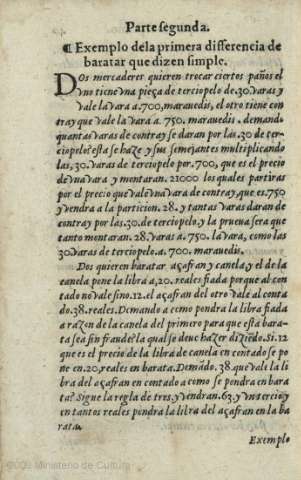 Parte segunda.
¶ Exemplo dela primera differencia de
baratar que dizen simple.
DOs mercaderes quieren trocar ciertos paños el
vno tiene vna pieça de terciopelo de.30.varas y
vale la vara a.700,marauedis, el otro tiene con
tray que vale la vara a 750. marauedis. demando
quantas varas de contray se daran por las.30 de ter-
ciopelo? esta se haze y sus semejantes multiplicando
las, 30. varas de terciopelo por. 700, que es el precio
de vna vara y montaran. 21000 los quales partiras
por el precio que vale vna vara de contray, que es.750
y vendra a la particion. 28. y tantas varas daran de
contray por las.30.de terciopelo, y la prueua sera que
tanto montaran. 28. varas a. 750. la vara, como las
30 varas de terciopelo a. 700. marauedis.
Dos quieren baratar açafran y canela, y el de la
canela pone la libra a, 20. reales fiada porque al con
tado no vale sino.12.el açafran del otro vale al conta
do.38.reales. Demando a como pondra la libra fiada
a razon de la canela del primero para que esta bara-
ta sea sin fraude? la qual se deue hazer diziẽdo. Si.12
que es el precio de la libra de canela en contado se po
ne en.20,reales en barata. Demãdo, 38.que vale la li
bra del açafran en contado a como se pondra en bara
ta? Sigue la regla de tres, y vendran.63, y vn tercio, y
en tantos reales pondra la libra del açafran en la ba
rata.
Exemplo
©2009 Ministerio de Cultura